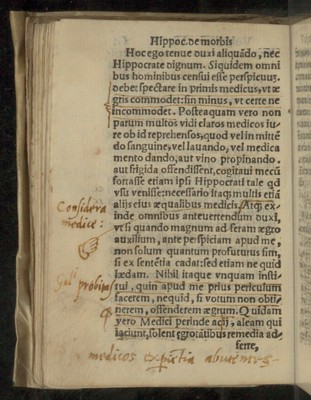 Hippoc. de morbis
Hoc ego tenue duxi aliquādo, nec
Hippocrate dignum. Siquidem omni
bus hominibus censui esse perspicuū.
debet spectare in primis medicus, vt æ
gris commodet: sin minus, vt certe ne
incommodet. Posteaquam vero non
parum multos vidi claros medicos iu/
re ob id reprehensos, quod vel in mittē
do sanguine, vel lauando, vel medica
mento dando, aut vino propinando,
aut frigida offendissent, cogitaui mecū
fortasse etiam ipsi Hippocrati tale qd
vsu venisse: necessario itaq; multis etiā
alijs eius æqualibus medicis. Atq; ex/
inde omnibus antevertendum duxi,
vt si quando magnum ad feram ægro
auxilium, ante perspiciam apud me,
non solum quantum profuturus sim,
si ex sententia cadat: sed etiam ne quid
lædam. Nihil itaque vnquam insti/
tui, quin apud me prius periculum
facerem, nequid, si votum non obti/
nerem, offenderem ægrum. Quidam
vero Medici perinde acsi, aleam qui
iaciunt, solent ęgrotātibus remedia ad/
ferre,
Considera
medice:
Gal
medicos